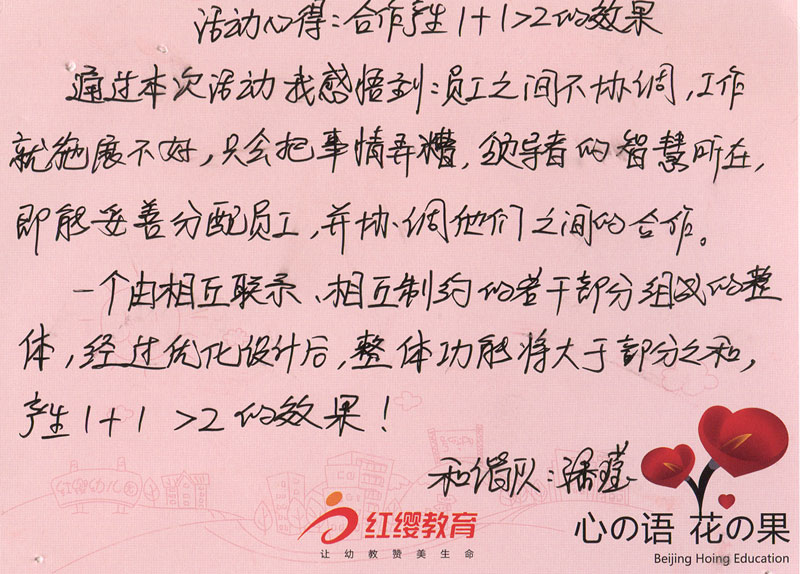 活动心得：合作产生1+1>2的效果
通过本次活动我感悟到：员工之间不协调，工作
就施展不好，只会把事情弄糟，领导者的智慧所在，
即能妥善分配员工，并协调他们之间的合作。
一个由相互联系、相互制约的若干部分组成的整
体，经过优化设计后，整体功能将大于部分之和，
产生1+1 >2的效果！
和谐队：梁莹
红缨幼儿园
红缨教育
让幼教赞美生命
心の语 花の果
Beijing Hoing Education